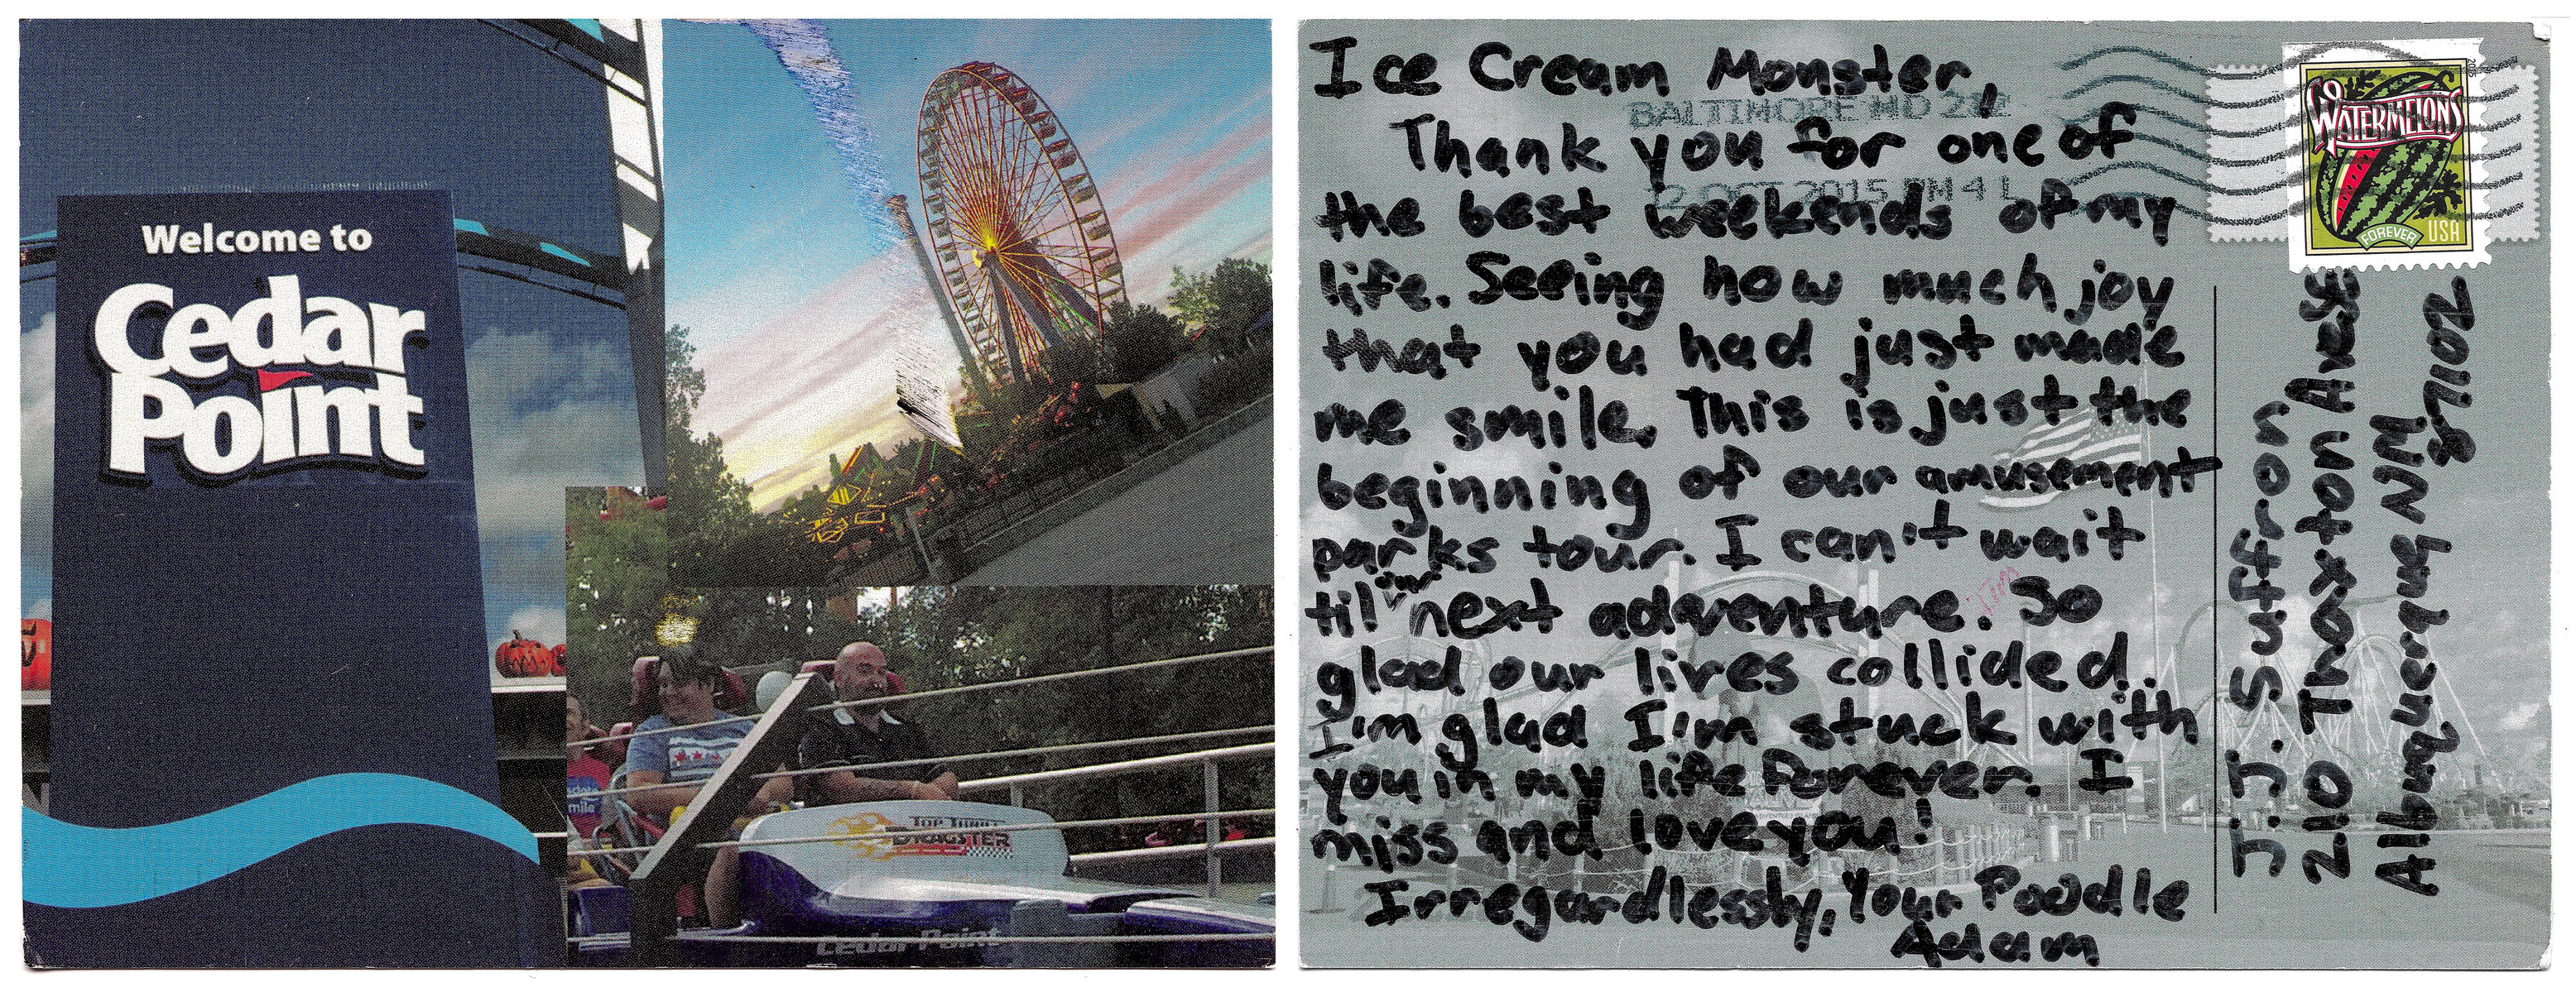 Welcome to
Cedar
Point
TOP THRILL
DRAGSTER
Cedar Point
Ice Cream Monster,
Thank you for one of
the best weekends of my
life. Seeing how much joy
that you had just made
me smile. This is just the
beginning of our amusement
parks tour. I can't wait
til our next adventure. So
glad our lives collided.
I'm glad I'm stuck with
you in my life forever. I
miss and love you!
Irregardlessly, Your Poodle
Adam
BALTIMORE MD 212
OCT 2015 PM 4 L
WATERMELONS
FOREVER USA
J.J. Suffron
210 Thaxton Ave SE
Albuquerque NM
87102